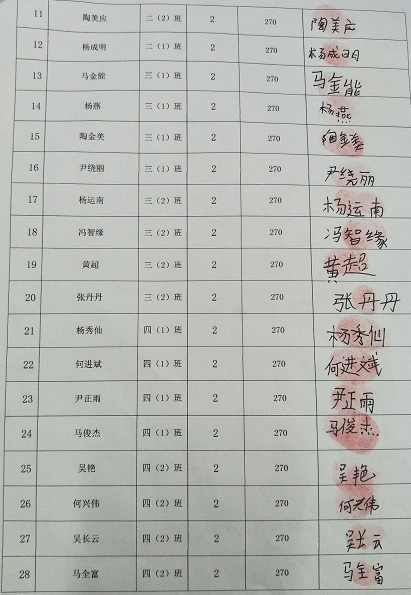 11 陶美应 二（2）班 2 270 陶美应
12 杨成明 二（1）班 2 270 杨成明
13 马金能 三（1）班 2 270 马金能
14 杨燕 三（1）班 2 270 杨燕
15 陶金美 三（1）班 2 270 陶金美
16 尹绕丽 三（1）班 2 270 尹绕丽
17 杨运南 三（2）班 2 270 杨运南
18 冯智缘 三（2）班 2 270 冯智缘
19 黄超 三（2）班 2 270 黄超
20 张丹丹 三（2）班 2 270 张丹丹
21 杨秀仙 四（1）班 2 270 杨秀仙
22 何进斌 四（1）班 2 270 何进斌
23 尹正雨 四（1）班 2 270 尹正雨
24 马俊杰 四（1）班 2 270 马俊杰
25 吴艳 四（2）班 2 270 吴艳
26 何兴伟 四（2）班 2 270 何兴伟
27 吴长云 四（2）班 2 270 吴长云
28 马全富 四（2）班 2 270 马全富